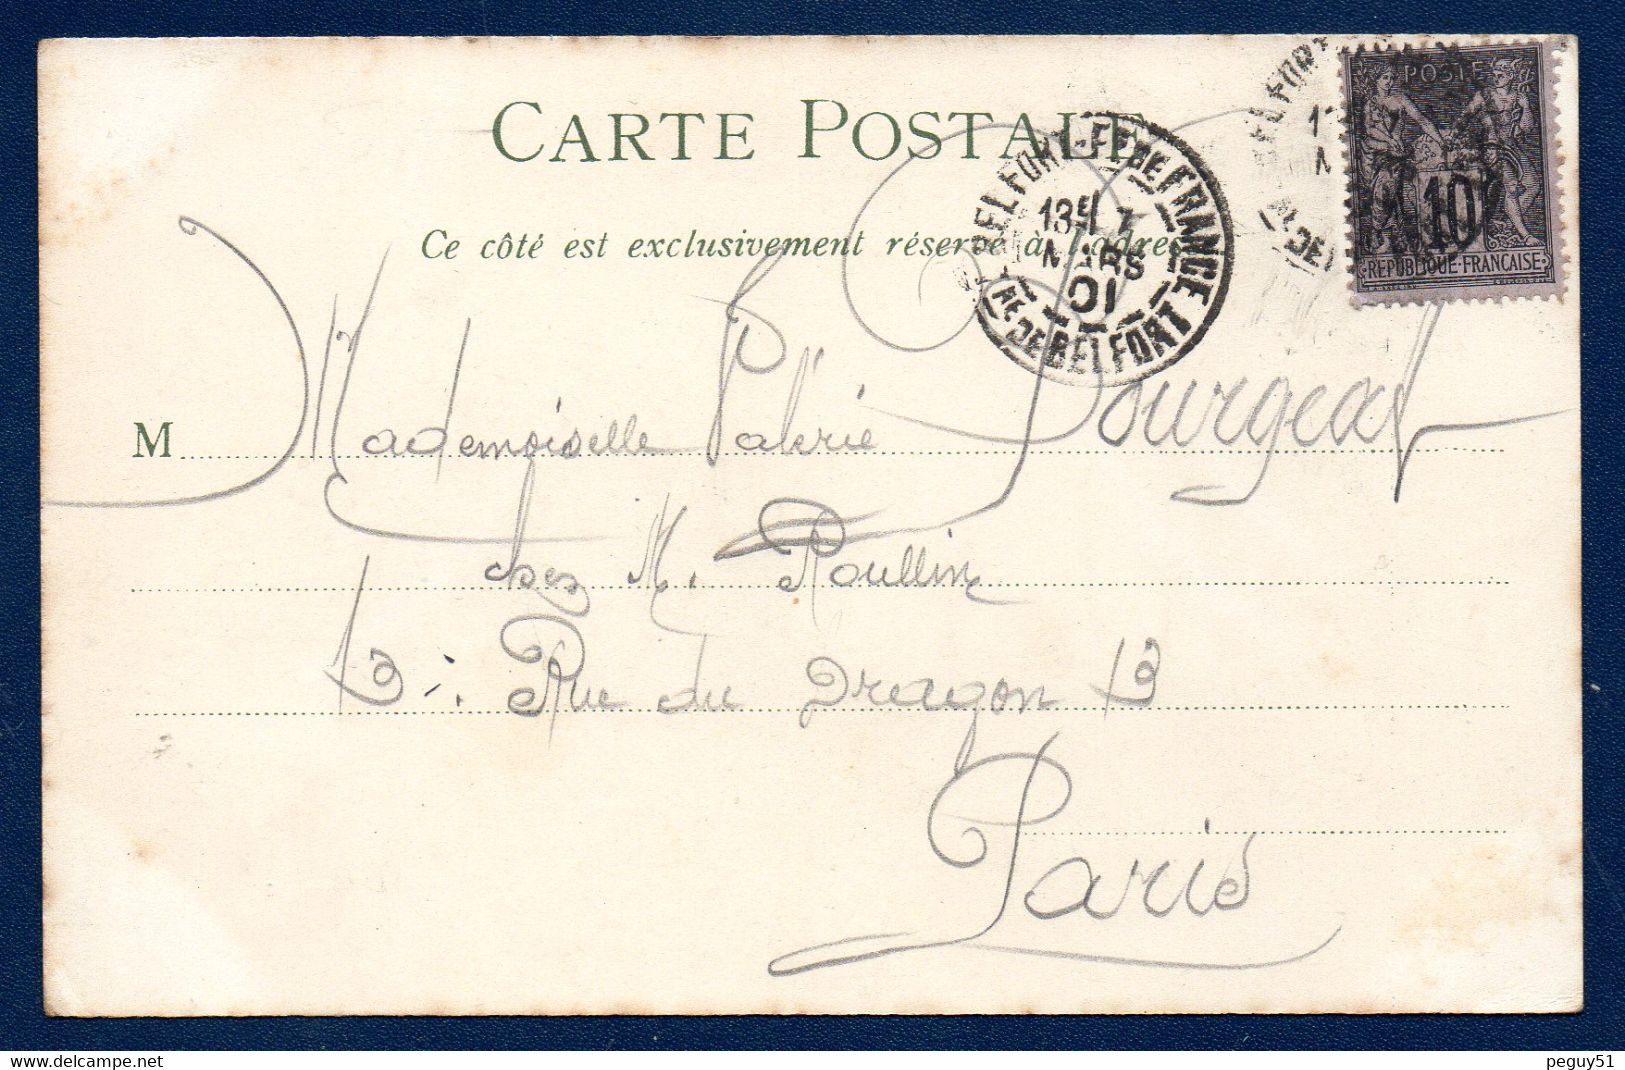 CARTE POSTALE
Ce côté est exclusivement réservé à l'adresse
BELFORT-FG DE FRANCE
13E 7
MARS
01
DE BELFORT
POSTE
10
REPUBLIQUE FRANÇAISE
M Mademoiselle Valérie Bourgeat
chez M. Roullin
13 Rue du Dragon 13
Paris
peguy51